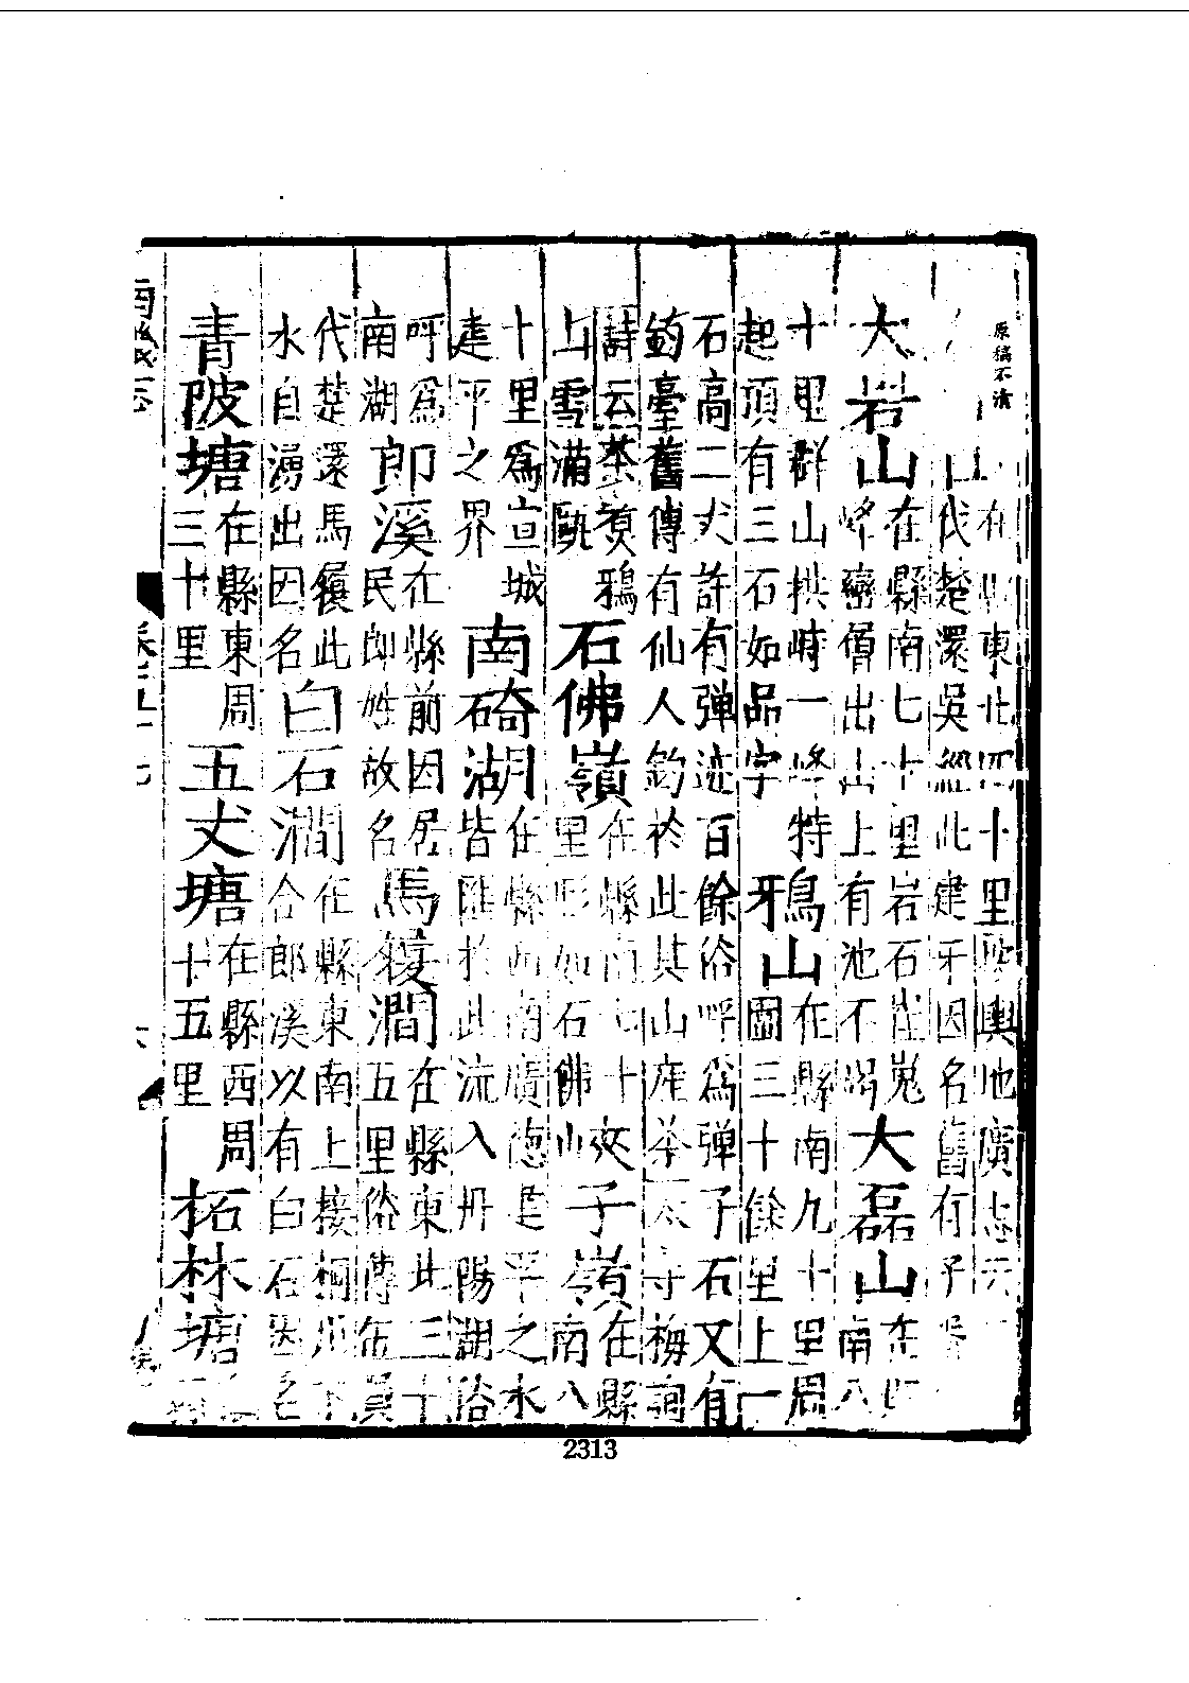 原稿不清
山在東北四十里輿地廣志云
代楚還吳經此建牙因名舊有子胥
大岩山在縣南七十里岩石崔嵬峰巒僧出山上有池不竭大磊山在縣南八
十里群山拱峙一峰特起頂有三石如品字鴉山在縣南九十里周圖三十餘里上一
石高二丈許有弹迹百餘俗呼爲弹子石又有
釣臺舊傳有仙人釣於此其山産茶太守梅詢
詩云茶煑鴉山雪滿甌石佛嶺在縣南七十里形如石佛山夾子嶺在縣南八
十里爲宣城建平之界南碕湖在縣西南廣德建平之水皆匯於此流入丹陽湖俗
呼爲南湖郎溪在縣前因居民郎姓故名馬獲澗在縣東北三十五里俗傳伍員
代楚還馬獲此水自湧出因名白石澗在縣東南上接桐川下合郎溪以有白石因名
青陂塘在縣東周三十里五丈塘在縣西周十五里柘林塘
南畿志 卷之五十七 六
2313